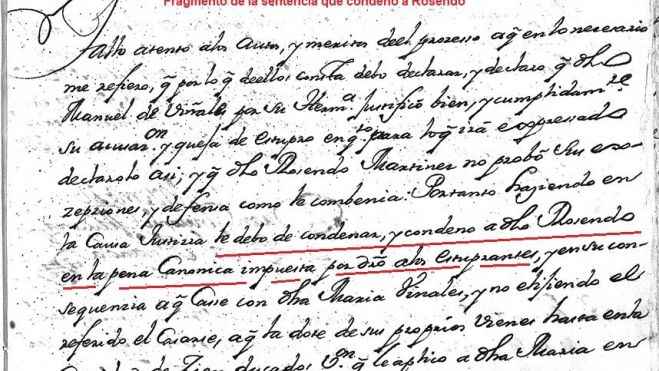 Fragmento de la sentencia que condenó a Rosendo
Fallo atento a los Autos, y meritos de el prozesso a q en lo necesario
me refiero, q por lo q de ellos consta debo declarar, y declaro q dho
Manuel de Viñales por su Herm.a Justificó bien, y cumplidam.te
su acusaz.on y quexa de estupro en q.to para lo q irá expressado
declarolo asi, y q dho Rosendo Martinez no probó sus exe-
zepziones, y defensa como le combenia: Portanto haziendo en
la Causa Justizia le debo de condenar, y condeno a dho Rosendo
en la pena Canonica impuesta por dro a los estuprantes, y en su con-
sequenzia a q Case con dha Maria Viñales, y no elixiendo el
referido el Casarse, a q la dote de sus proprios vienes hasta en la
de Zien ducados, q le aplico a dha Maria en